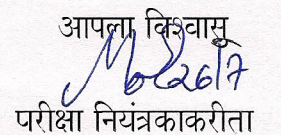 आपला विश्वासू
26/7
परीक्षा नियंत्रकाकरीता